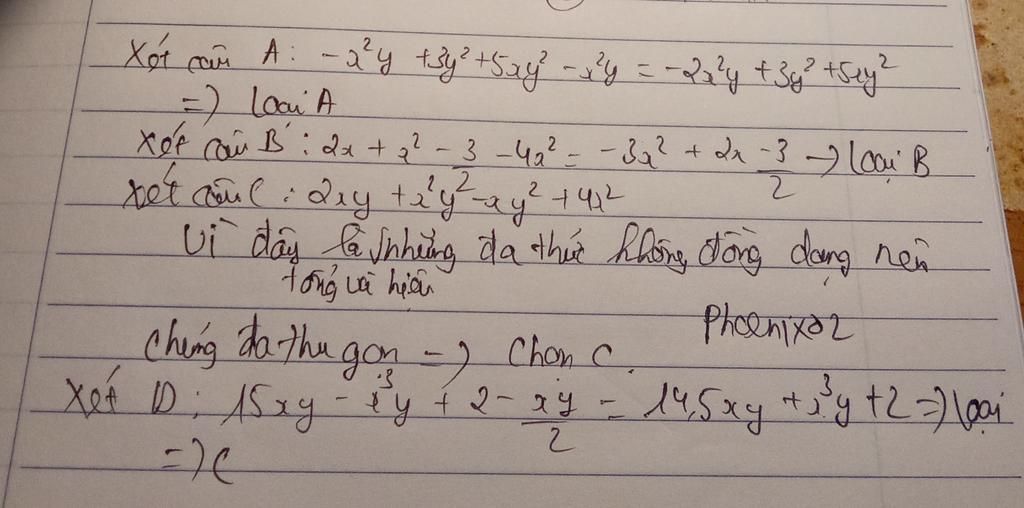 Xét câu A: -x²y + 3y² + 5xy² - x²y = -2x²y + 3y² + 5xy²
=> Loại A
Xét câu B: 2x + x² - 3/2 - 4x² = -3x² + 2x - 3/2 -> loại B
Xét câu C: 2xy + x²y² - xy² + 4x²
Vì đây là những đa thức không đồng dạng nên
tổng và hiệu
Phoenix22
chúng đã thu gọn -> Chọn C.
Xét D: 15xy - x³y + 2 - xy/2 = 14,5xy + x³y + 2 => loại
=> C